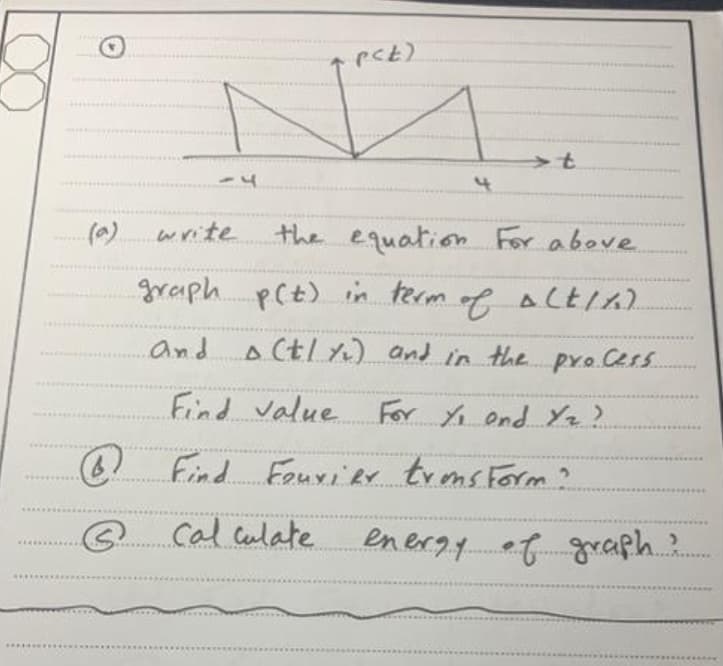 p(t)
t
-4 4
(a) write the equation For above
graph p(t) in term of Δ(t/γ₁)
and Δ(t/γ₂) and in the process
Find value For γ₁ and γ₂?
(b) Find Fourier transform?
Calculate energy of graph?